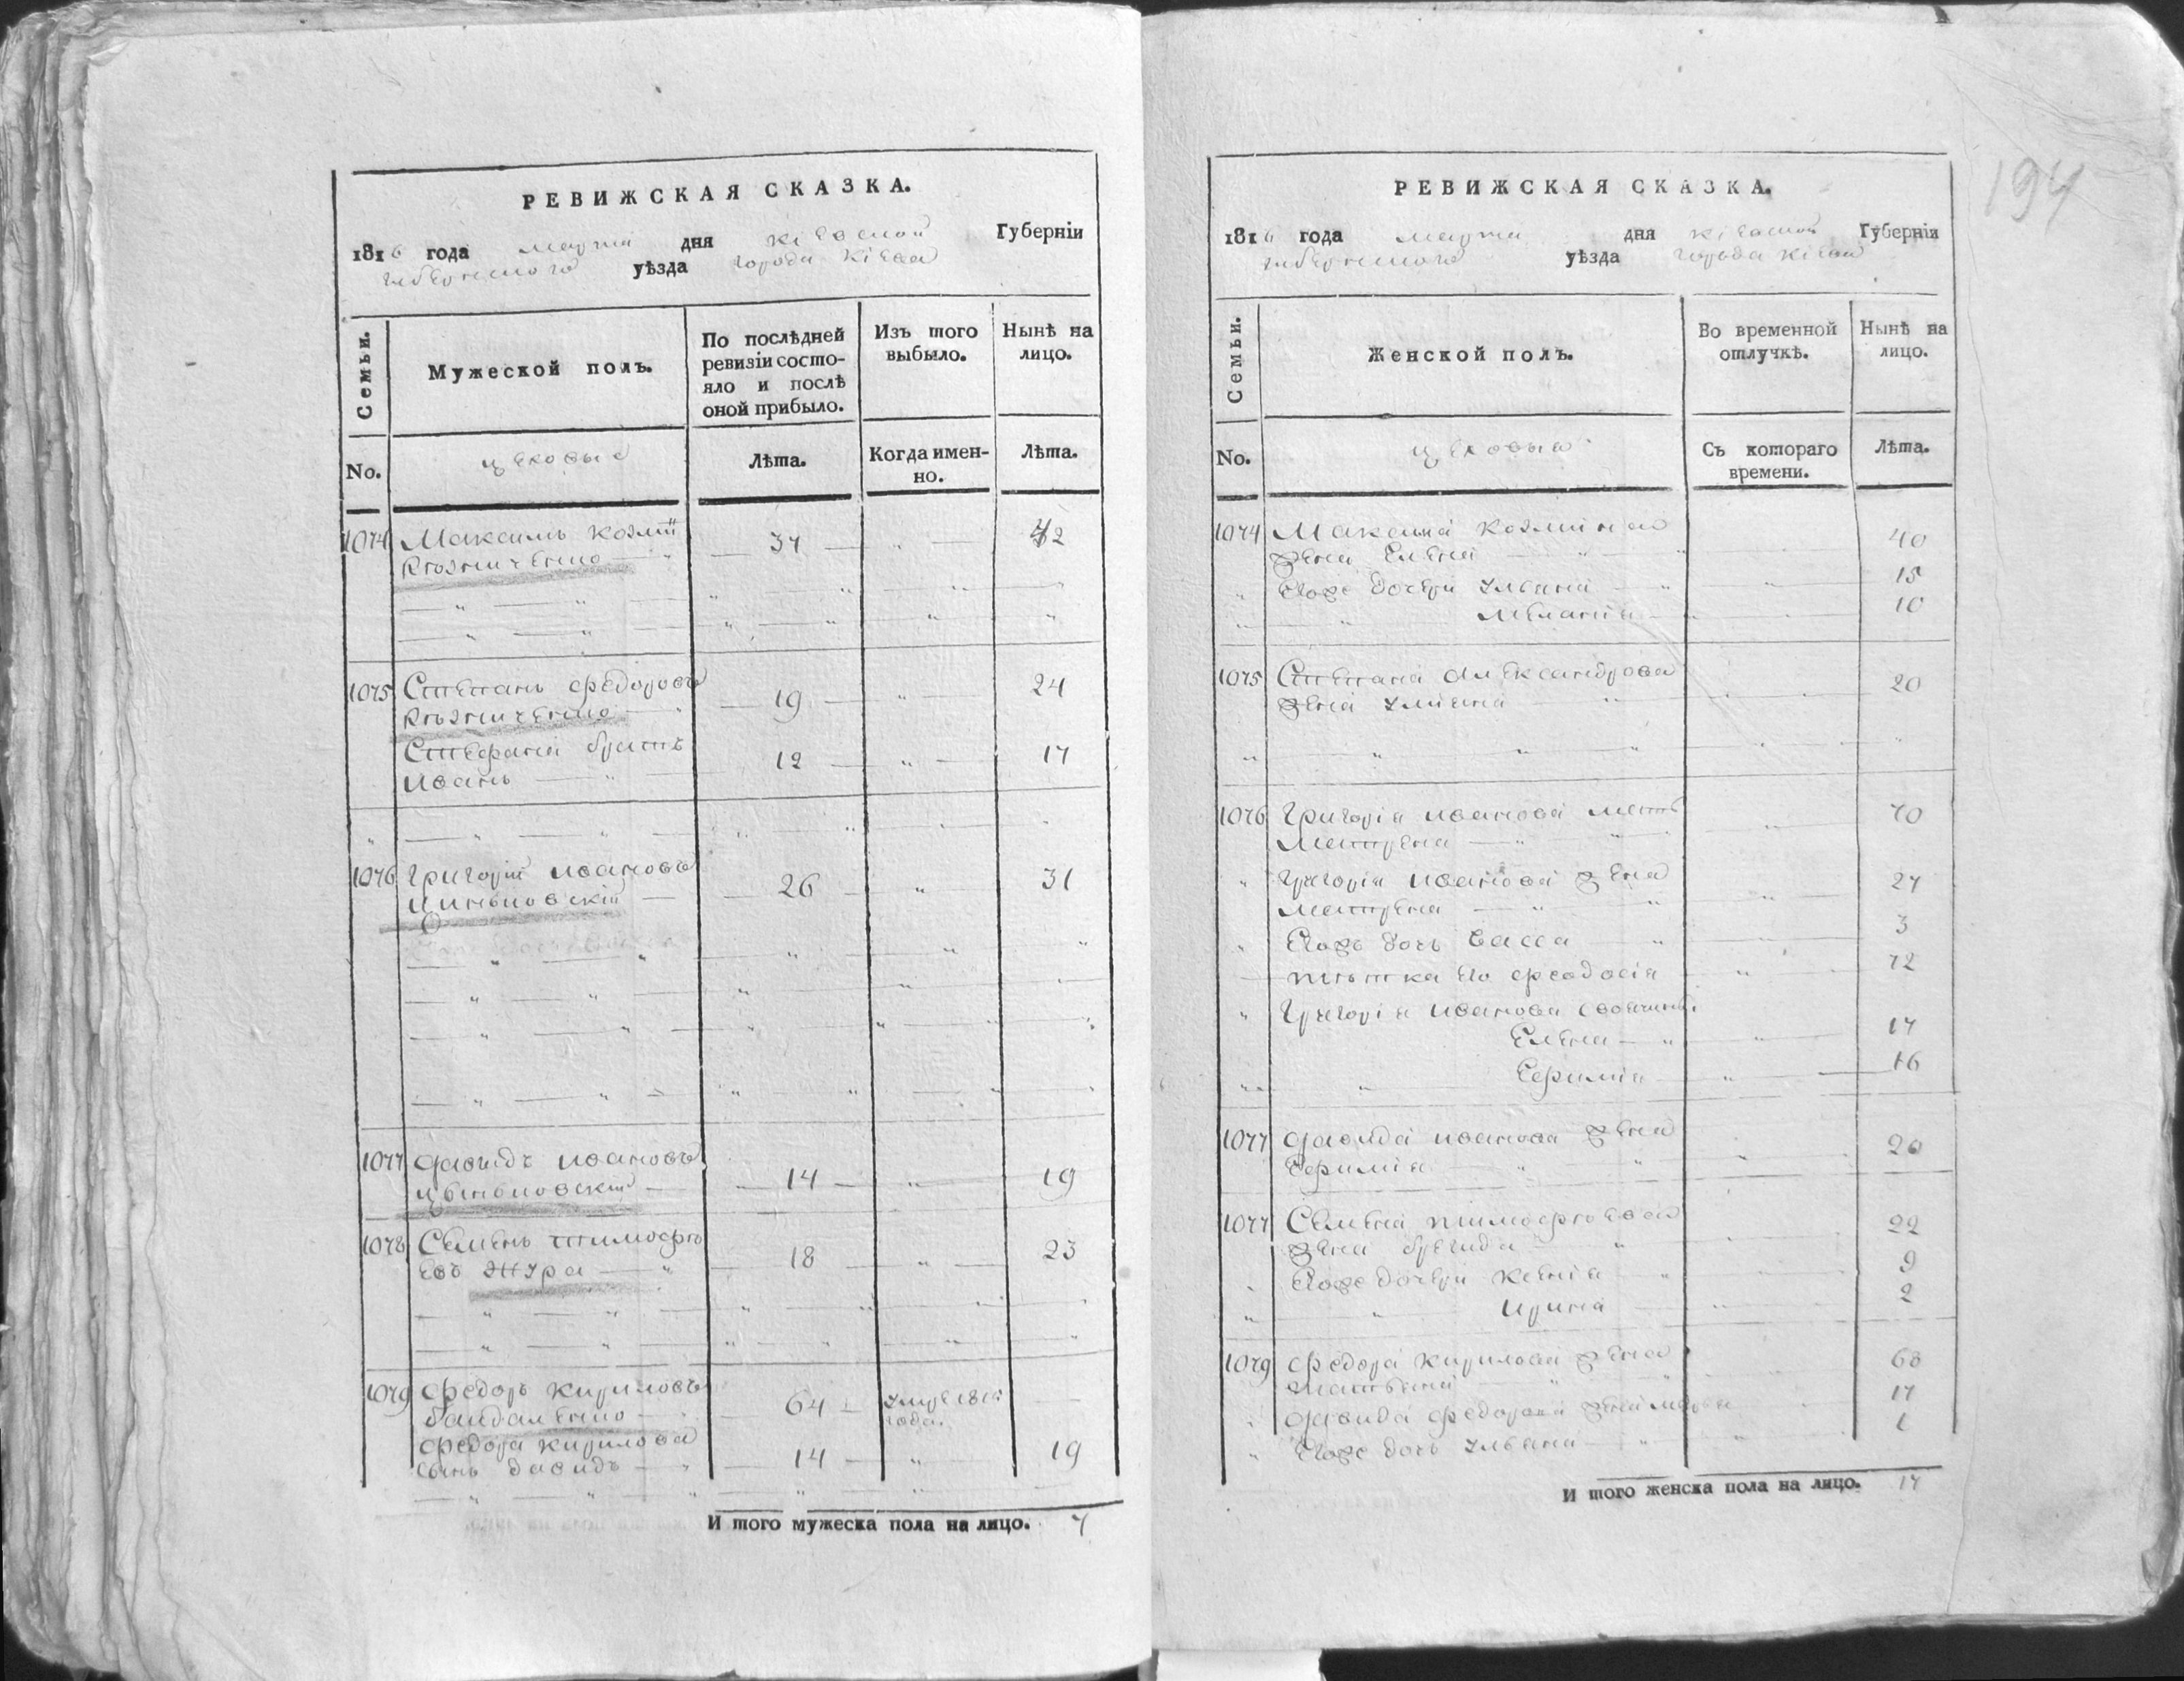 РЕВИЖСКАЯ СКАЗКА.
1816 года марта дня кіевской Губерніи
губернского уѣзда города Кіева
Семьи.
Мужеской полъ.
По послѣдней ревизіи состояло и послѣ оной прибыло.
Изъ того выбыло.
Нынѣ на лицо.
No.
цеховые
Лѣта.
Когда именно.
Лѣта.
1074 Максимъ Козмін
37 42
1075 Степанъ Федоровъ
19 24
Стефана братъ
Иванъ 12 17
1076 Григорій Ивановъ
26 31
1077 Давидъ Ивановъ
14 19
1078 Семенъ Тимофѣ
евъ Жура 18 23
1079 Федоръ Кириловъ
64 умре 1815
года
Федора Кирилова
сынъ Давидъ 14 19
И того мужеска пола на лицо. 7
194
РЕВИЖСКАЯ СКАЗКА.
1816 года марта дня кіевской Губерніи
губернского уѣзда города Кіева
Семьи.
Женской полъ.
Во временной отлучкѣ.
Нынѣ на лицо.
No.
цеховые
Съ котораго времени.
Лѣта.
1074 Максима Козмина
жена Елена 40
Егожъ дочери Ульяна 15
Меланія 10
1075 Степана Александрова
жена Ульяна 20
1076 Григорія Иванова мать
Матрена 70
Григорія Иванова жена
Матрена 27
Егожъ дочь Васса 3
тьотка его Феодосія 72
Григорія Иванова
Елена 17
Ефимія 16
1077 Давида Иванова жена
Ефимія 20
1077 Семена Тимофѣева
жена 22
Егожъ дочери Ксенія 9
Ирина 2
1079 Федора Кирилова жена
Татьяна 60
Давида Федорова жена Марья 17
Егожъ дочь Ульяна 1
И того женска пола на лицо. 17